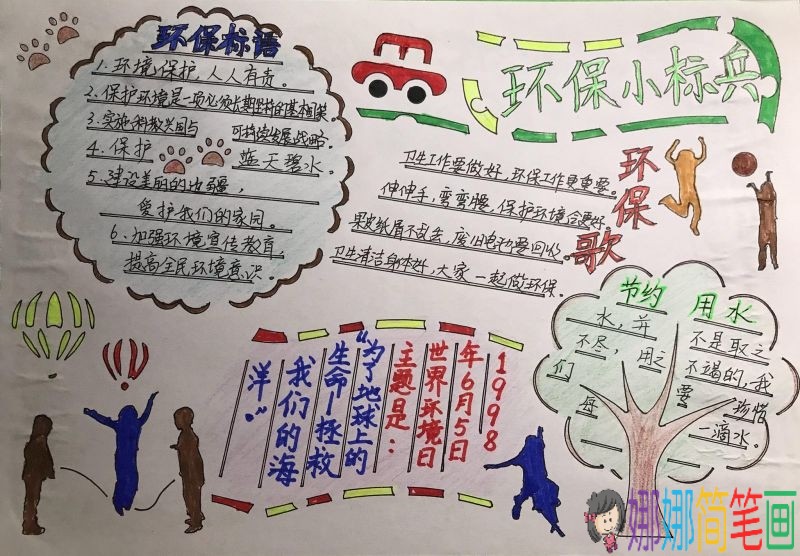 环保标语
1.环境保护,人人有责。
2.保护环境是一项必须长期坚持的基本国策。
3.实施科教兴国与可持续发展战略。
4.保护蓝天碧水。
5.建设美丽的边疆,
爱护我们的家园。
6.加强环境宣传教育
提高全民环境意识。
环保小标兵
环保歌
卫生工作要做好,环保工作更重要。
伸伸手,弯弯腰,保护环境会更好
果皮纸屑不乱丢,废旧电池要回收。
卫生清洁身体好,大家一起做环保。
1998
年6月5日
世界环境日
主题是:
“为了地球上的
生命—拯救
我们的海
洋。”
节约用水
水,并不是取之
不尽,用之不竭的,我
们要珍惜
每一滴水。
娜娜简笔画